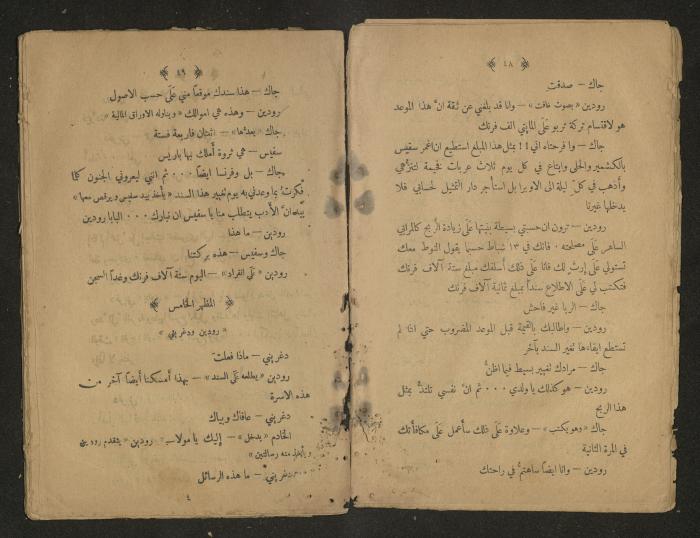 ﴿ ٤٨ ﴾
جاك – صدقت
رودين «بصوت خافت» – وانا قد بلغني عن ثقة انَّ هذا الموعد
هو لاقتسام تركة تربو عَلَى المايتي الف فرنك
جاك – وا فرحتاه اني!! بمثل هذا المبلغ استطيع ان اغمر سفيس
بالكشمير والحلى وابتاع في كل يوم ثلاث عربات فخيمة لتنزُّهي
وأذهب في كلّ ليلة الى الاوبرا بل أستأجر دار التمثيل لحسابي فلا
يدخلها غيرنا
رودين – ترون ان حسبتي بسيطة بنيتها عَلَى زيادة الربح كالمرابي
الساهر عَلَى مصلحته ٠ فانك في ١٣ شباط حسبما يقول النوط معك
تستولي عَلَى إرث لك فانا عَلَى ذلك أسلفك مبلغ ستة آلاف فرنك
فتكتب لي عَلَى الاطلاع سنداً بمبلغ ثمانية آلاف فرنك
جاك – الربا غير فاحش
رودين – واطالبك بالقيمة قبل الموعد المضروب حتي اذا لم
تستطع ايفاءها تغير السند بآخر
جاك – مرادك تغيير بسيط فيما اظنُّ
رودين – هو كذلك يا ولدي ٠٠٠ ثم انَّ نفسي تلتذُّ بمثل
هذا الربح
جاك «وهو يكتب» – وعلاوة عَلَى ذلك سأعمل عَلَى مكافأتك
في المرة الثانية
رودين – وانا ايضاً ساهتمُّ في راحتك
﴿ ٤٩ ﴾
جاك – هذا سندك موقعاً مني عَلَى حسب الاصول
رودين – وهذه هي اموالك «ويناوله الاوراق المالية»
جاك «يعدّها» – اثنتان فاربعة فستة
سفيس – هي ثروة أملك بها باريس
جاك – بل وفرنسا ايضاً ٠٠٠ ثم انني ليعروني الجنون كلما
فكرتُ بما وعدني به يوم تغيير هذا السند «يأخذ بيد سفيس ويرقص معها»
انَّ الأدب يتطلب منا يا سفيس ان نبارك ٠٠٠ البابا رودين
رودين – ما هذا
جاك وسفيس – هذه بركتنا
رودين «عَلَى انفراد» – اليوم ستة آلاف فرنك وغداً السجن
﴿ المظهر الخامس ﴾
« رودين ودغريني »
دغريني – ماذا فعلت
رودين «يطلعه عَلَى السند» – بهذا أمسكنا أيضاً آخر من
هذه الاسرة
دغريني – عافاك وبياك
الخادم «يدخل» – إليك يا مولاي رودين «يتقدم رودين
ويأخذ منه رسالتين»
دغريني – ما هذه الرسائل
٤